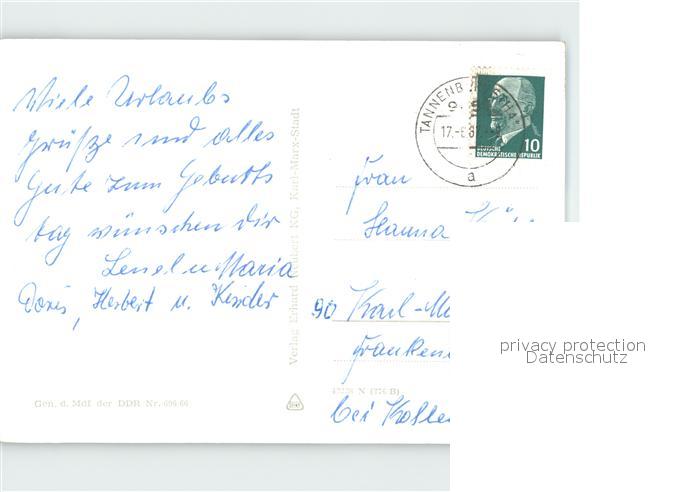 Viele Urlaubs
grüße und alles
Gute zum Geburts
tag wünschen dir
Maria
Doris, Herbert u. Kinder
Gen. d. MdI der DDR Nr. 696/66
Verlag Erhard Neubert KG, Karl-Marx-Stadt
TANNENB
17.-6.67.
a
10
DEUTSCHE
DEMOKRATISCHE REPUBLIK
Frau
Hanna
90 Karl-M
Franken
bei
privacy protection
Datenschutz